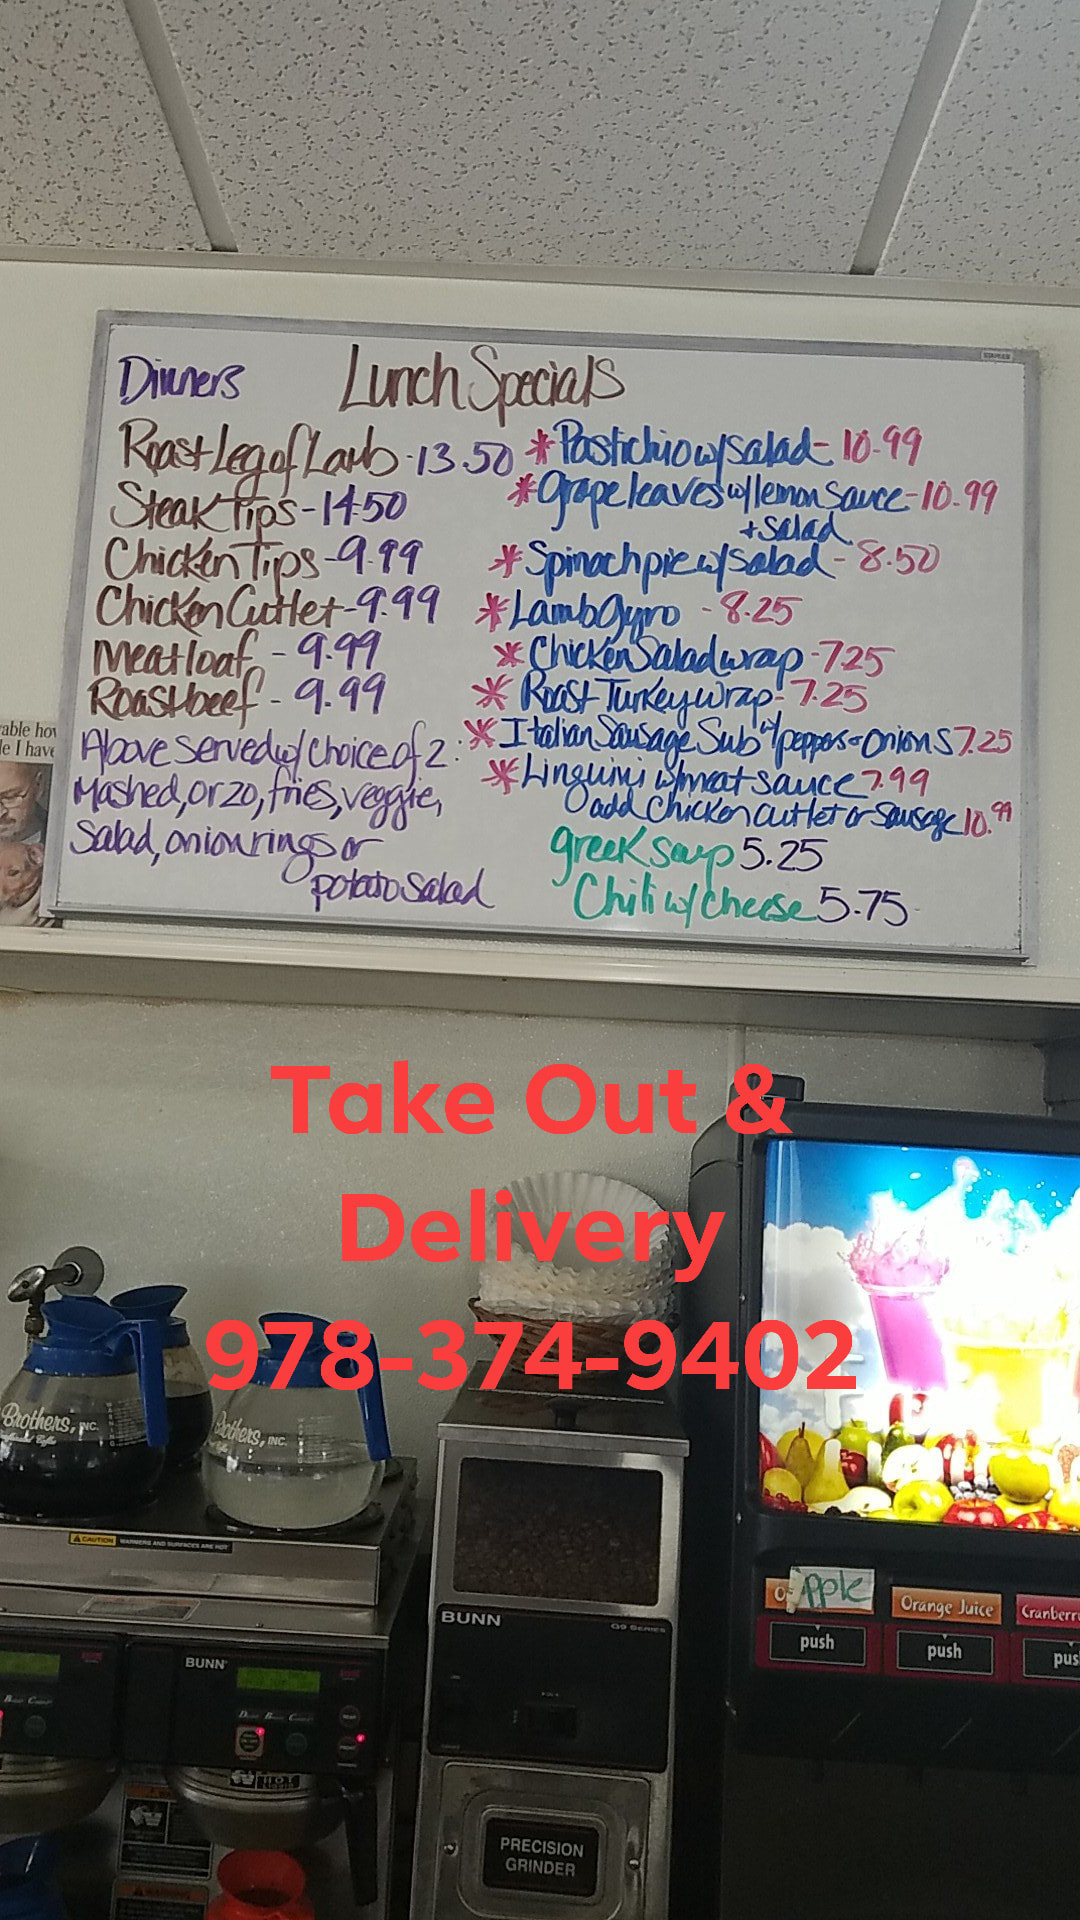 Lunch Specials
Dinners
Roast Leg of Lamb - 13.50
Steak Tips - 14.50
Chicken Tips - 9.99
Chicken Cutlet - 9.99
Meatloaf - 9.99
Roast beef - 9.99
Above served w/ choice of 2:
Mashed, orzo, fries, veggie,
Salad, onion rings or
potato salad
* Pastichio w/ salad - 10.99
* Grape leaves w/ lemon sauce - 10.99
+ salad
* Spinach pie w/ salad - 8.50
* Lamb Gyro - 8.25
* Chicken Salad wrap - 7.25
* Roast Turkey wrap - 7.25
* Italian Sausage Sub w/ peppers + onions 7.25
* Linguini w/ meat sauce 7.99
add chicken cutlet or sausage 10.99
Greek soup 5.25
Chili w/ cheese 5.75
Take Out &
Delivery
978-374-9402
Brothers, INC.
Brothers, INC.
CAUTION WARMERS AND SURFACES ARE HOT
BUNN
G9 SERIES
BUNN
PRECISION
GRINDER
Apple
Orange Juice
Cranberr
push
push
pus
able how
le I have